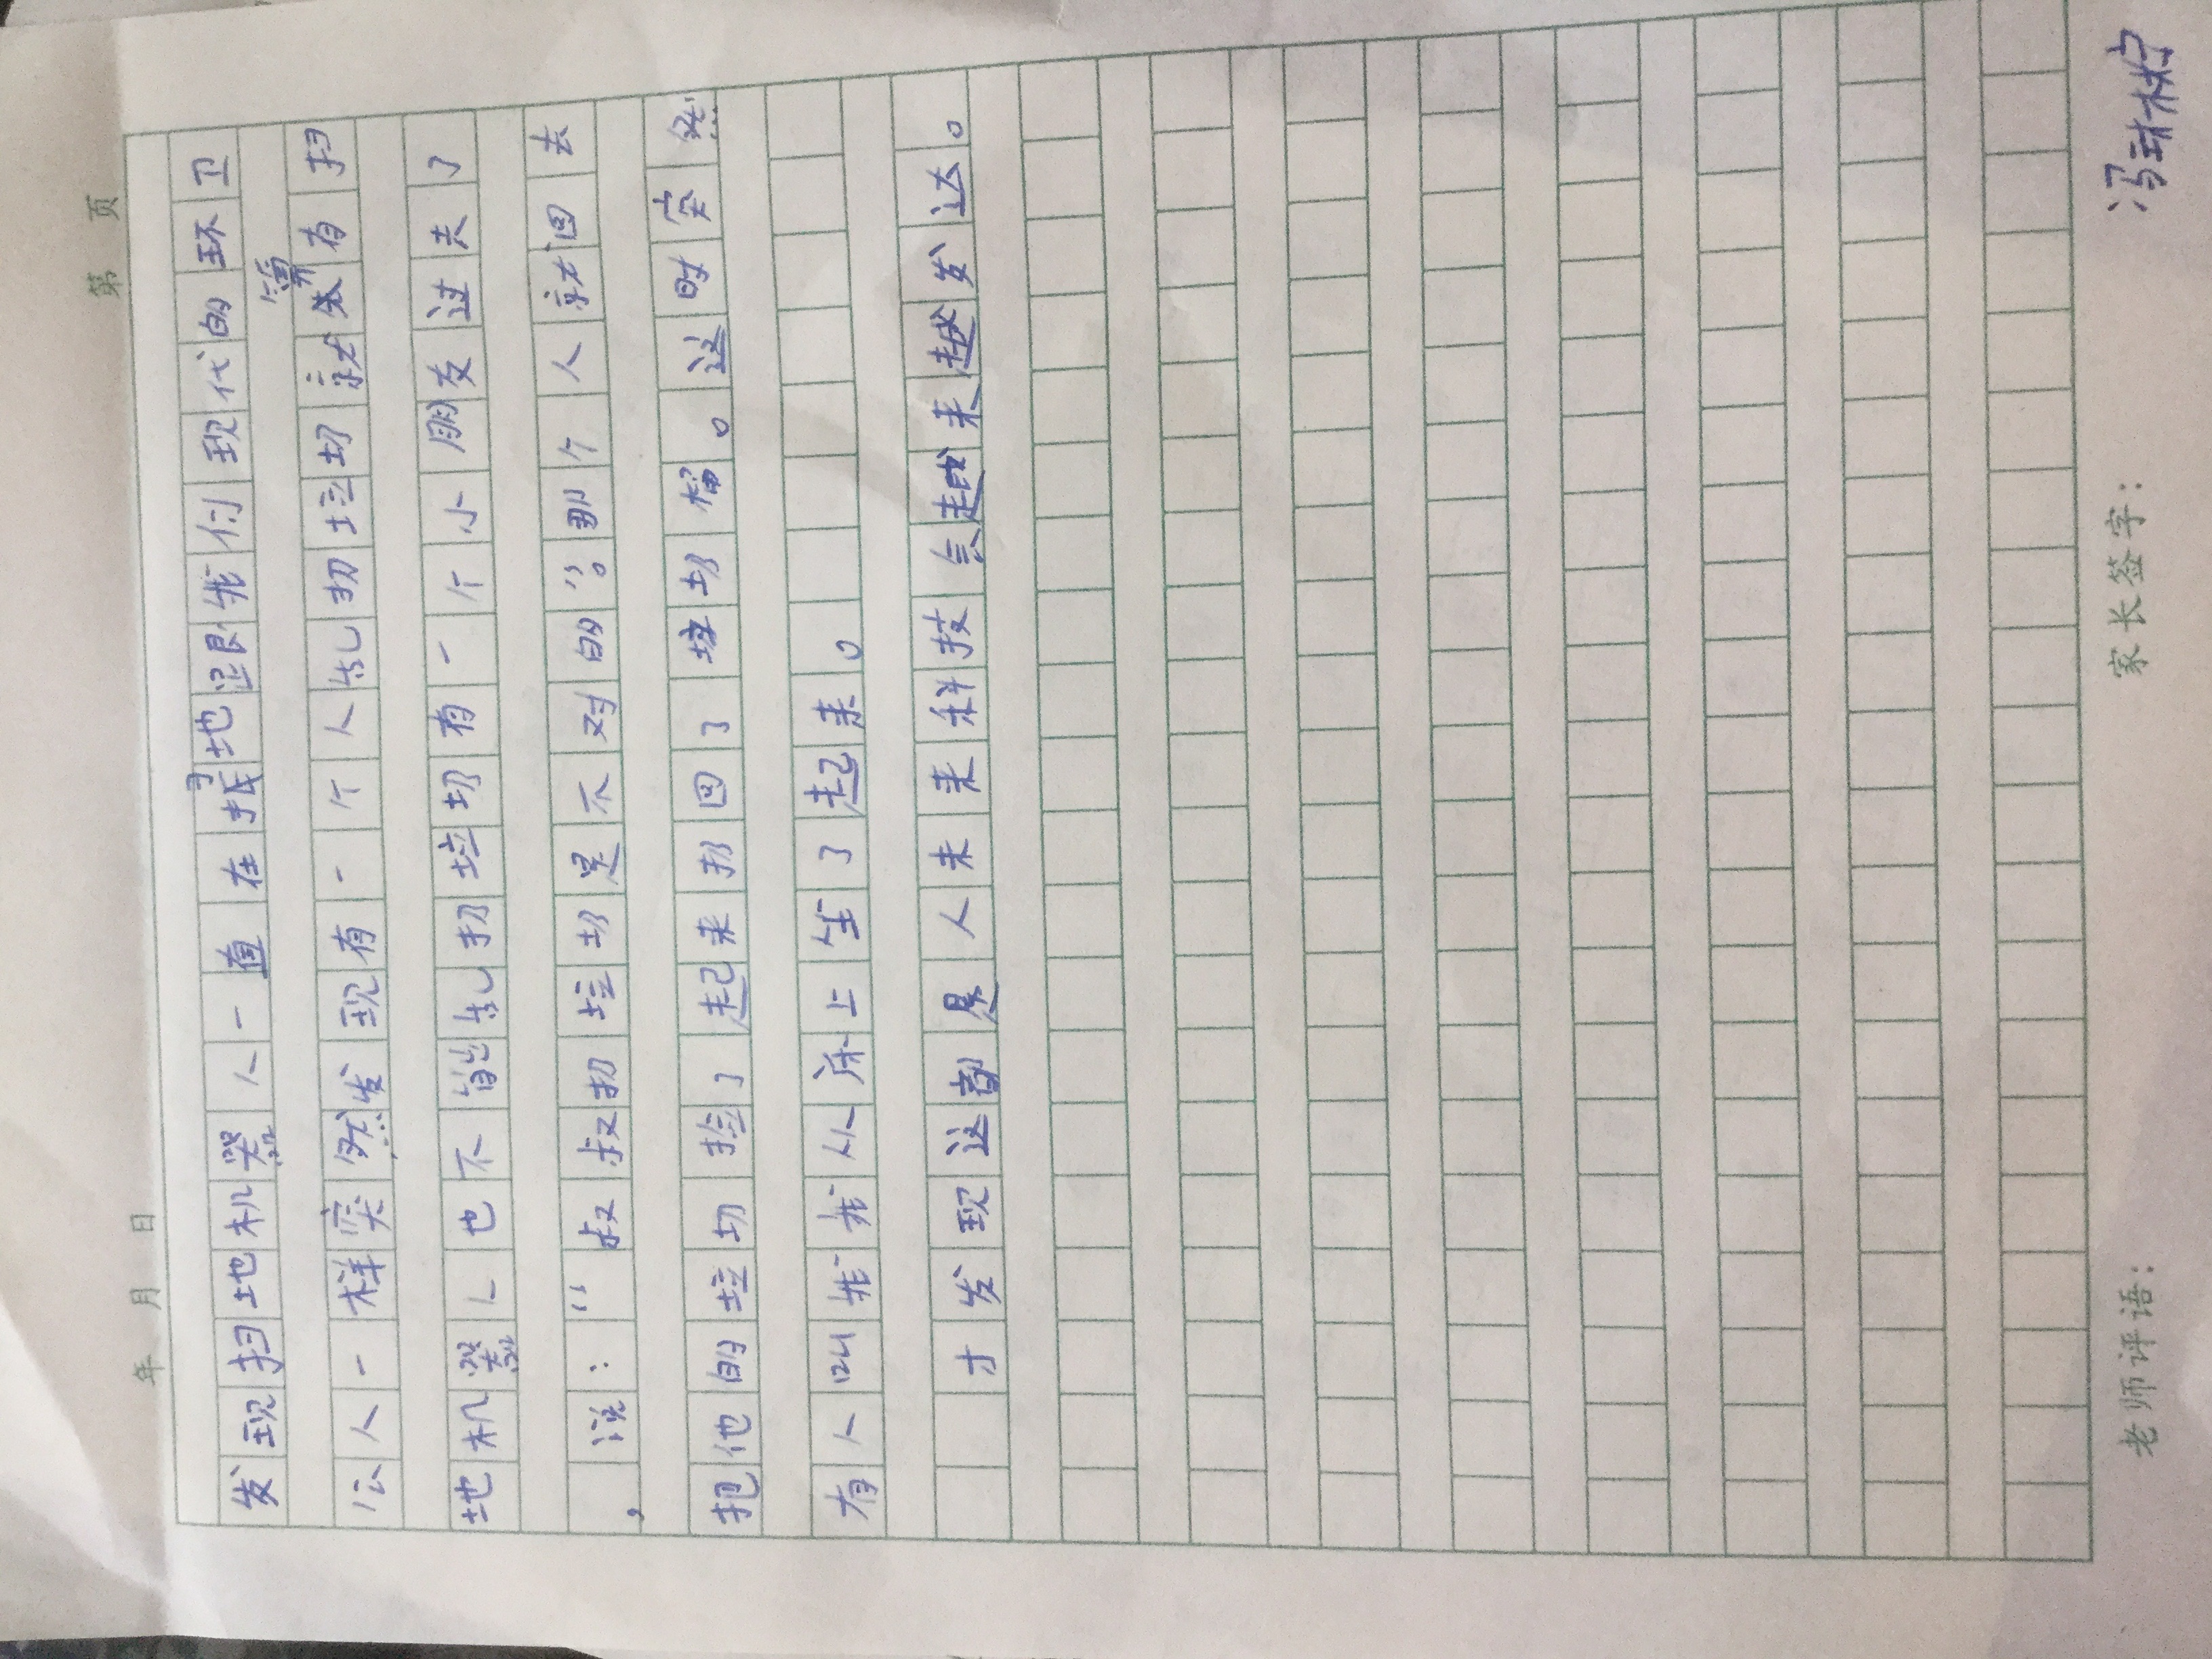 第 页
年 月 日
发现扫地机器人一直在扫地跟我付现代的环卫
公人一样突然发现有一个人乱扔垃圾就算有扫
地机器人也不能乱扔垃圾有一个小朋友过去了
，说：“叔叔扔垃圾是不对的”。那个人就回去
把他的垃圾捡了起来扔回了垃圾桶。这时突然
有人叫我我从床上坐了起来。
才发现这都是人未来科技会越来越发达。
老师评语： 家长签字： 冯